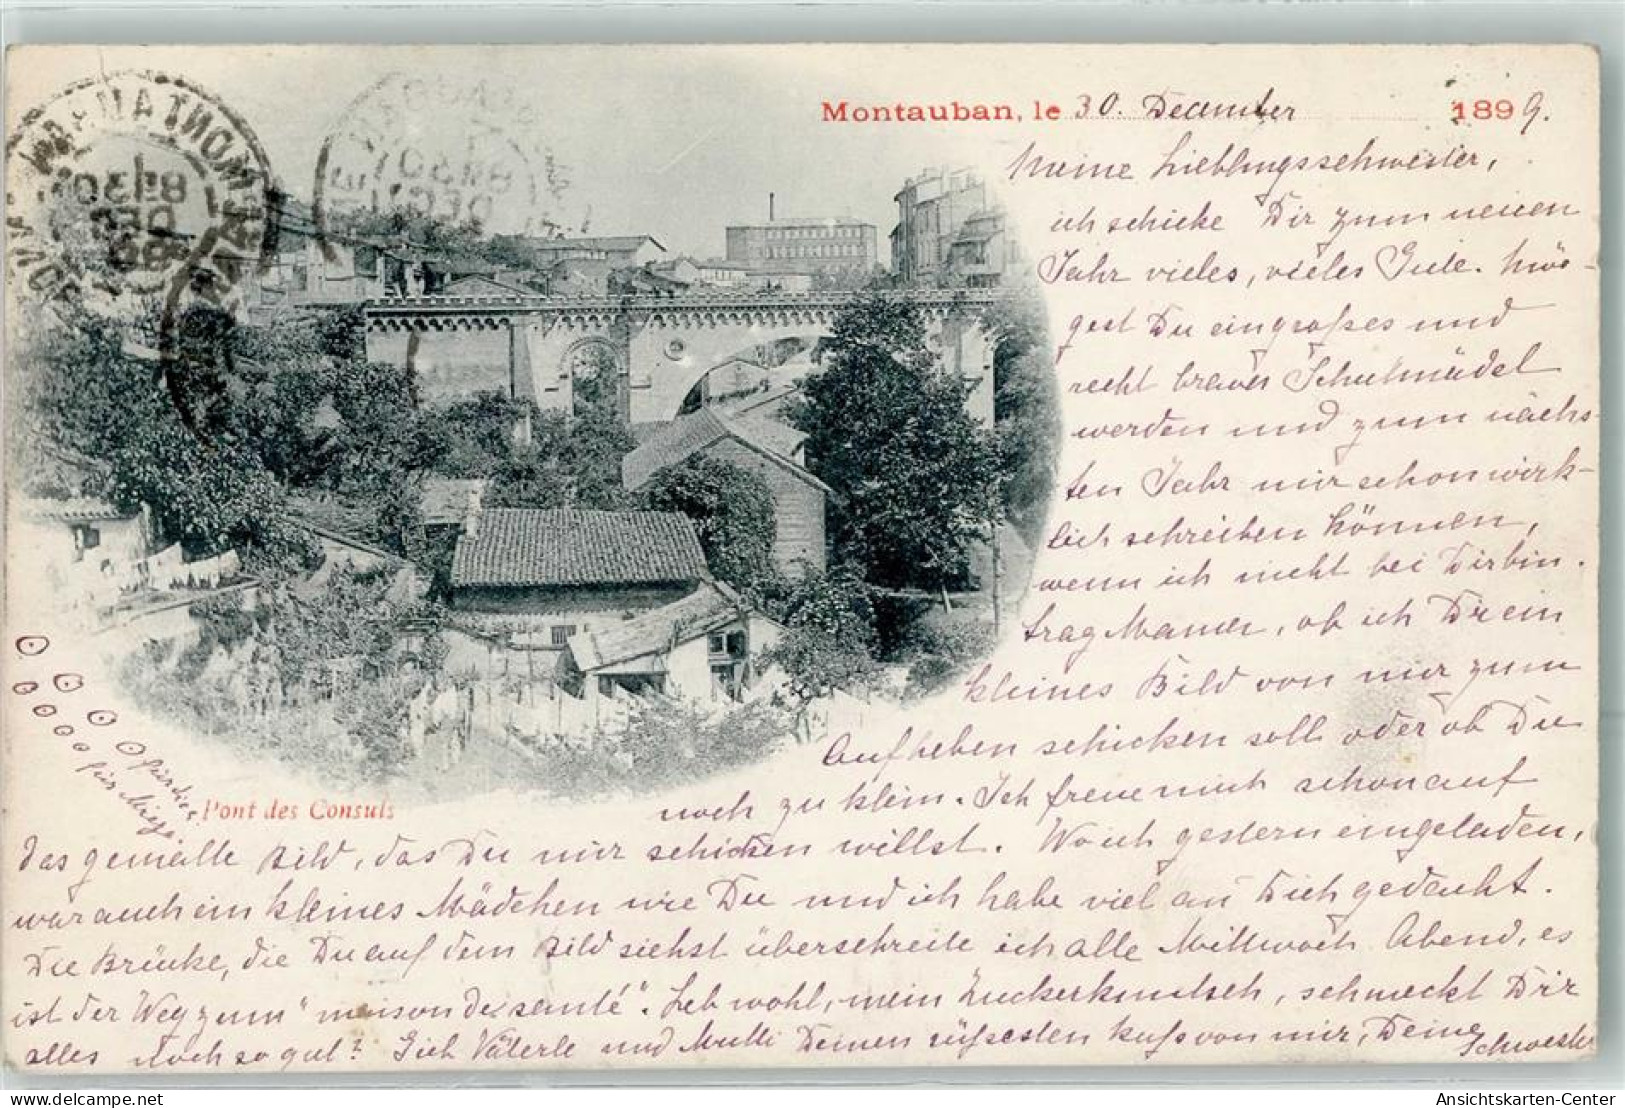 Montauban, le 30. December 1899.
Meine Lieblingsschwester,
ich schicke Dir zum neuen
Jahr vieles, vieles Gute. Mö-
gest Du ein großes und
recht braves Schulmädel
werden und zum nächs-
ten Jahr mir schon wirk-
lich schreiben können,
wenn ich nicht bei Dir bin.
Frag Maman, ob ich Dir ein
kleines Bild von mir zum
Aufheben schicken soll oder ob Du
noch zu klein. Ich freue mich schon auf
das gemalte Bild, das Du mir schicken willst. Wo ich gestern eingeladen,
war auch ein kleines Mädchen wie Du und ich habe viel an Dich gedacht.
Die Brücke, die Du auf dem Bild siehst überschreite ich alle Mittwoch Abend, es
ist der Weg zum "maison de santé". Leb wohl, mein Zuckerknutsch, schmeckt Dir
alles noch so gut? Gieb Väterle und Mutti Deinen süßesten Kuß von mir, Deine
Schwester
für
für
Pont des Consuls
MONTAUBAN
8h30
DEC
99
www.delcampe.net
tpmc
Ansichtskarten-Center